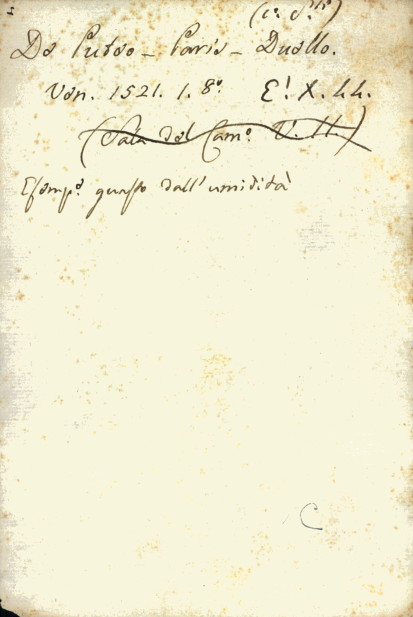 De Puteo - Paris - Duello.
Ven. 1521. 1. 8º. E! X. 44.
(Sala del Camº V. 11.)
Esempº guasto dall'umidità
C